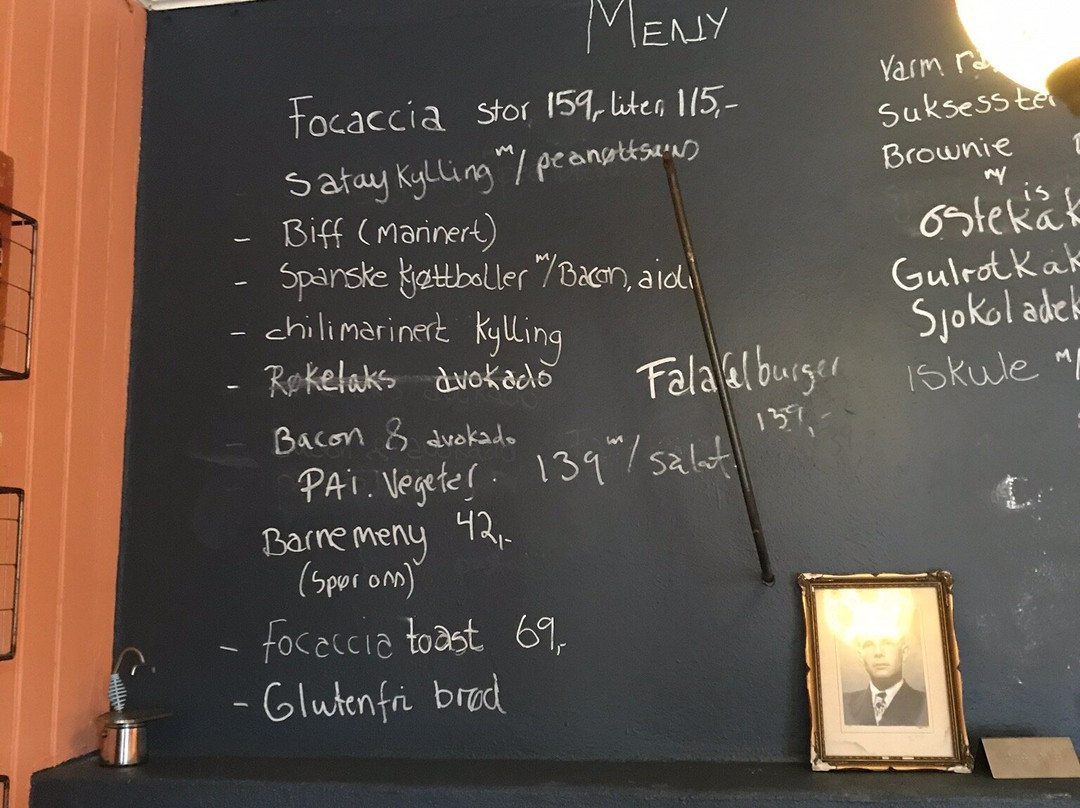 MENY
Focaccia stor 159,- liten 115,-
Satay kylling m/ peanøttsaus
- Biff (marinert)
- Spanske kjøttboller m/Bacon, aioli
- chilimarinert kylling
- Røkelaks avokado
- Bacon & avokado
PAi. Vegetar. 139 m/ salat
Barnemeny 42,-
(spør oss)
- Focaccia toast 69,-
- Glutenfri brød
Falafelburger
139,-
Varm
Suksesster
Brownie
m/ is
Ostekak
Gulrotkak
Sjokoladek
iskule m/